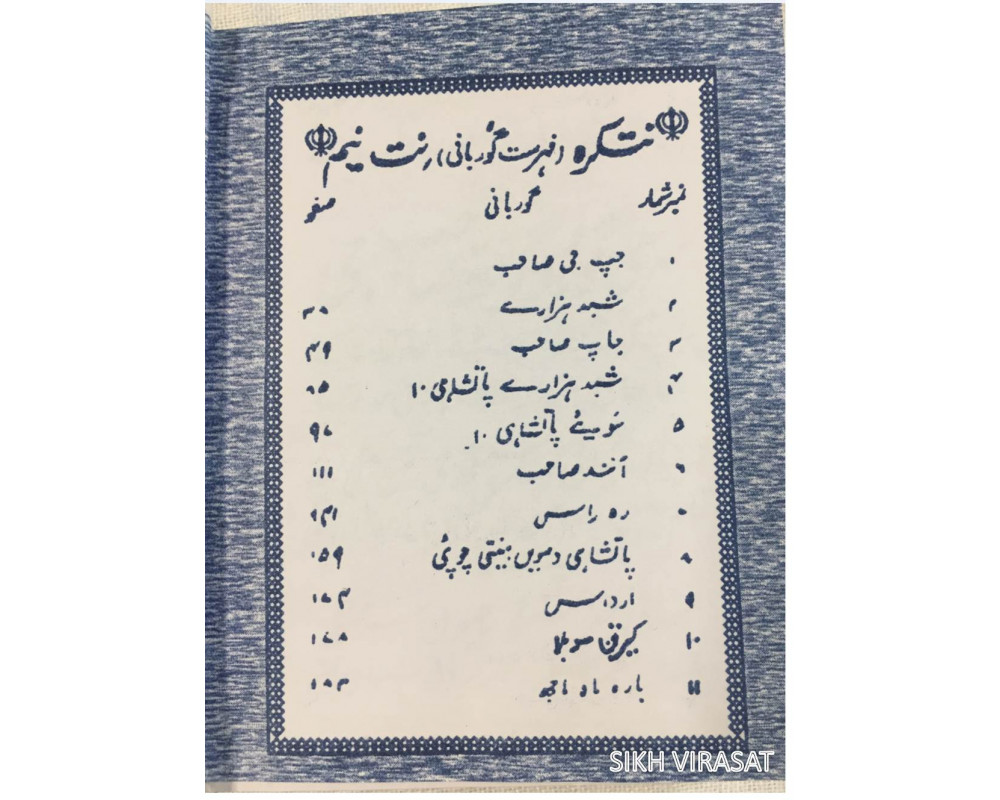 تتکرہ (فہرست گوربانی)، نت نیم
نمبر شمار گوربانی صفحہ
۱ جپ جی صاحب
۲ شبد ہزارے ۳۸
۳ جاپ صاحب ۴۹
۴ شبد ہزارے پاتشاہی ۱۰
۵ سَویئے پاتشاہی ۱۰ ۹۷
۶ آنند صاحب ۱۱۱
۷ رہ راس ۱۴۱
۸ پاتشاہی دسویں بینتی چوپئی ۱۵۹
۹ ارداس ۱۷۴
۱۰ کیرتن سوہلا ۱۷۸
۱۱ بارہ ماہ مانجھ ۱۸۳
SIKH VIRASAT